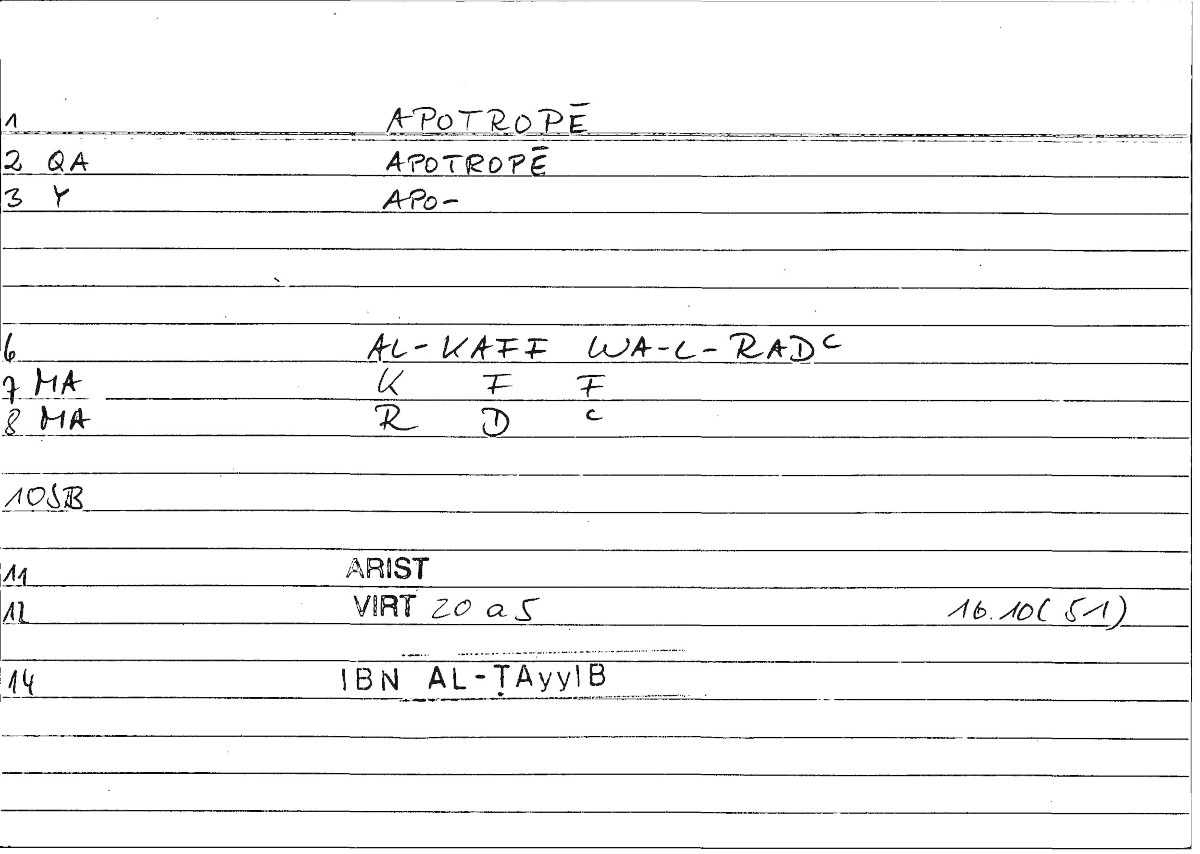 1 APOTROPĒ
2 QA APOTROPĒ
3 Y APO-
6 AL-KAFF WA-L-RADᶜ
7 MA K F F
8 MA R D ᶜ
10SB
11 ARIST
12 VIRT 20 a 5 16.10(51)
14 IBN AL-ṬAyyIB